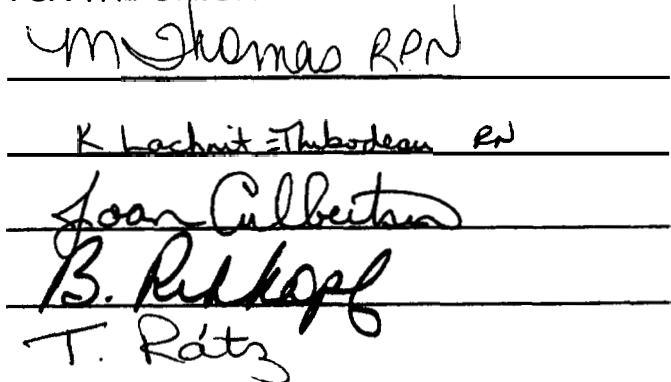 M Thomas RPN
K Lachnit-Thibodeau RN
Joan Culbertson
B.
T. Rátz